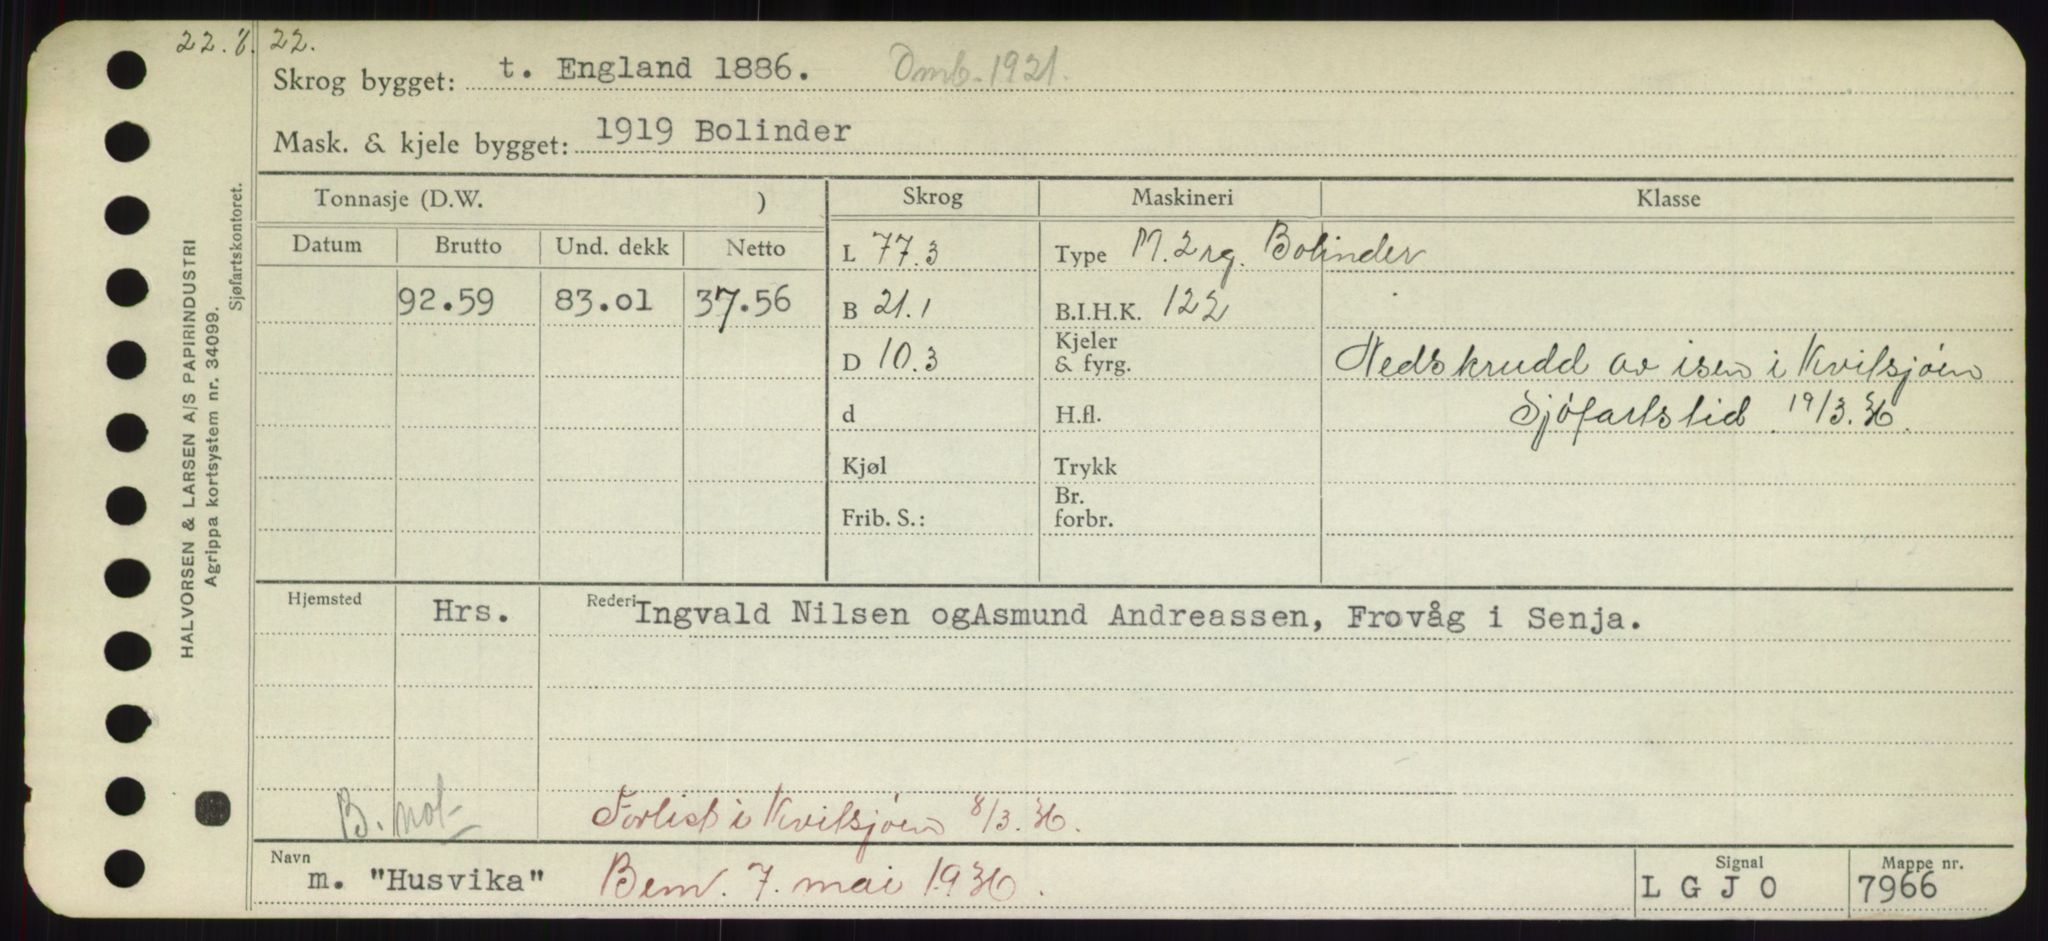 22.8.22.
Skrog bygget: t. England 1886. Omb. 1921.
Mask. & kjele bygget: 1919 Bolinder
Tonnasje (D.W. ) Skrog Maskineri Klasse
Datum Brutto Und. dekk Netto L 77.3 Type M. 2 syl. Bolinder
92.59 83.01 37.56 B 21.1 B.I.H.K. 122
D 10.3 Kjeler & fyrg. Nedskrudd av isen i Kvitsjøen
d H.fl. Sjøfartstid. 19/3.36.
Kjøl Trykk
Frib. S.: Br. forbr.
Hjemsted Hrs. Rederi Ingvald Nilsen ogAsmund Andreassen, Frovåg i Senja.
B. not Forlist i Kvitsjøen 8/3.36.
Navn m. "Husvika" Bem. 7. mai 1936. Signal L G J O Mappe nr. 7966
HALVORSEN & LARSEN A/S PAPIRINDUSTRI
Agrippa kortsystem nr. 34099.
Sjøfartskontoret.